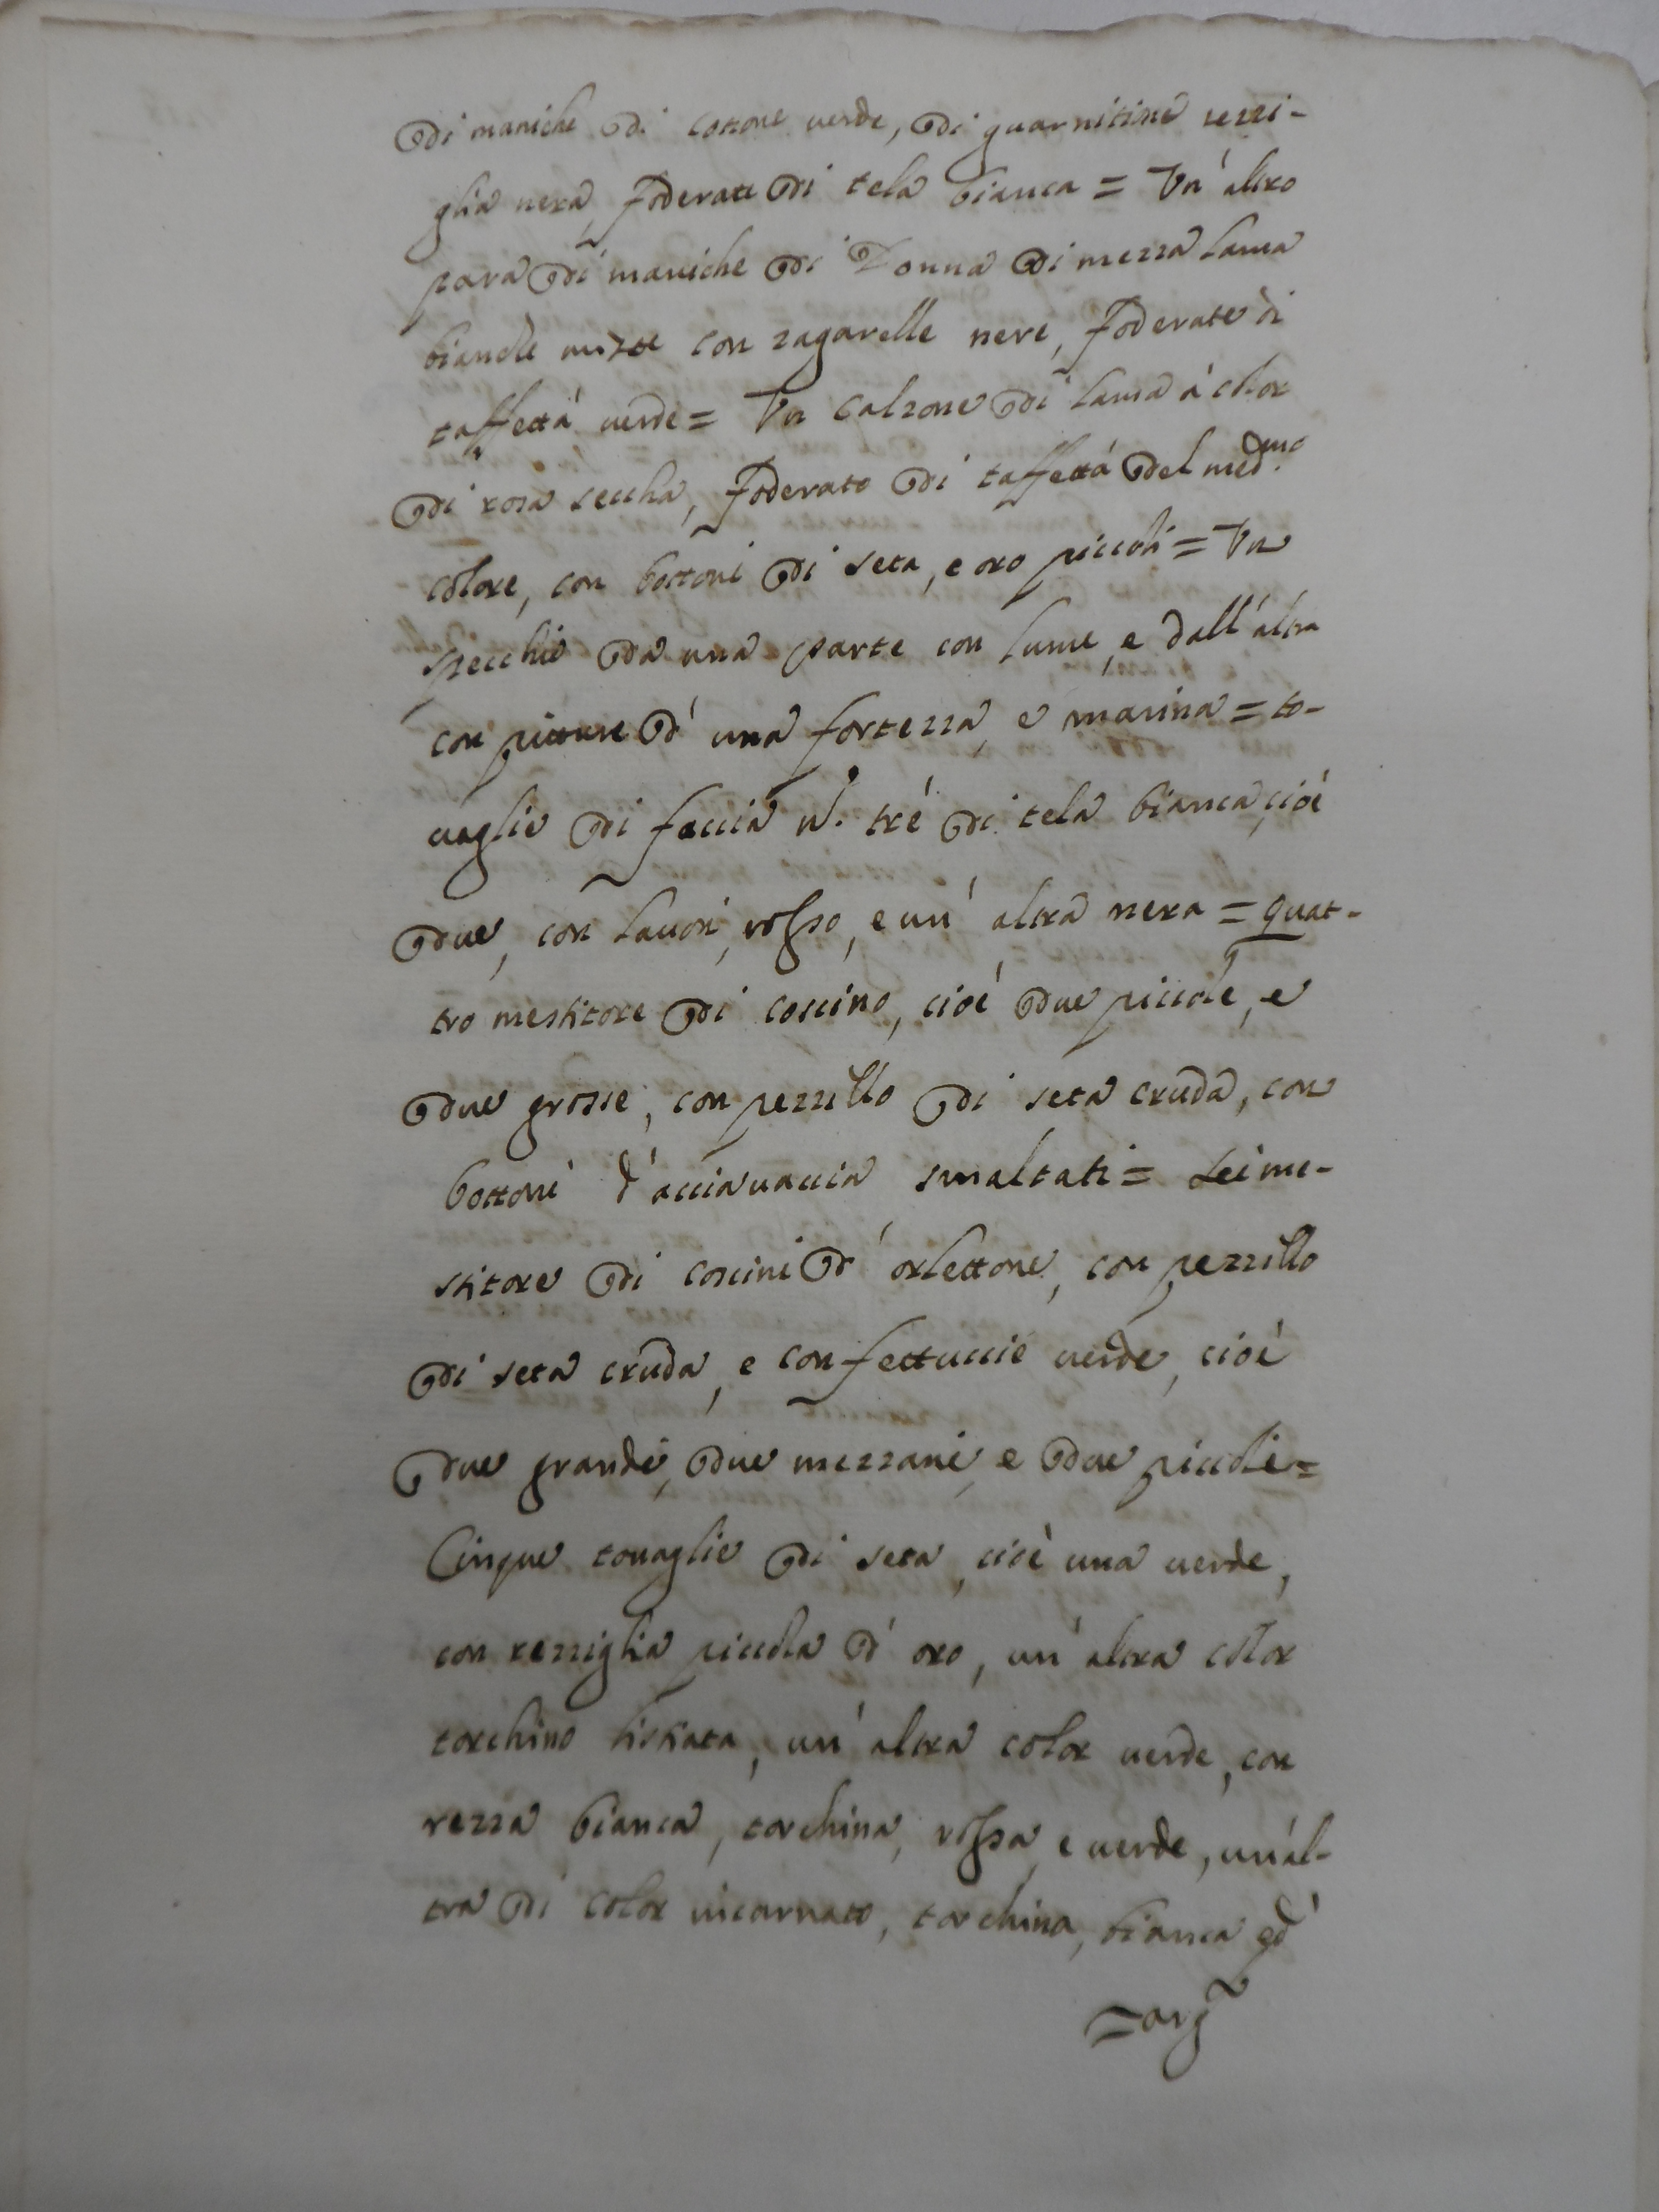 di maniche di cottone verde, di guarnitine rezzi-
glia nera, foderate di tela bianca = Un' altro
para di maniche di Donna di mezza lana
bianche con zagarelle nere, foderate di
taffettà verde = Un Calzone di lama à color
di rosa seccha, foderato di taffettà del med.mo
colore, con bottoni di seta, e oro piccoli = Un
specchio da una parte con lume, e dall' altra
con pitture d' una fortezza, e marina = to-
vaglie di faccia n.º tré di tela bianca, cioè
due, con lavori, rosso, e un' altra nera = quat-
tro mestitore di coscino, cioè due piccole, e
due grosse, con pezzillo di seta cruda, con
bottoni d' acciavaccia smaltati = Sei me-
stitore di coscini d' orlettone, con pezzillo
di seta cruda, e con fettuccie verde, cioè
due grandi, due mezzani, e due piccoli =
Cinque tovaglie di seta, cioè una verde,
con rezziglia piccola d' oro, un' altra color
torchino listiata, un' altra color verde, con
rezza bianca, torchina, rossa, e verde, un' al-
tra di color incarnato, torchina, bianca ed
= arg